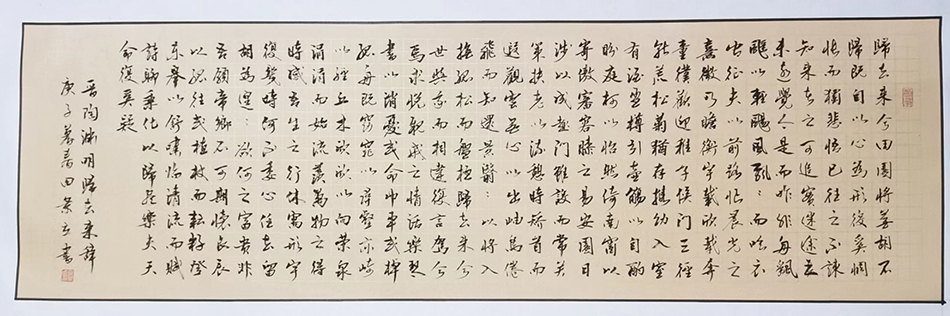 歸去来兮田園將蕪胡不
歸既自以心為形役奚惆
悵而獨悲悟已往之不諫
知来者之可追實迷途其
未遠覺今是而昨非舟颻
颻以輕颺風飄〻而吹衣
問征夫以前路恨晨光之
熹微乃瞻衡宇載欣載奔
童僕歡迎稚子候門三徑
就荒松菊猶存攜幼入室
有酒盈樽引壺觴以自酌
眄庭柯以怡顏倚南窗以
寄傲審容膝之易安園日
涉以成趣門雖設而常关
策扶老以流憩時矯首而
遐觀雲無心以出岫鳥倦
飛而知還景翳〻以將入
撫孤松而盤桓歸去来兮
世與我而相違復言駕兮
焉求悅親戚之情話樂琴
書以消憂或命巾車或棹
孤舟既窈窕以尋壑亦崎
以經丘木欣欣以向榮泉
涓涓而始流羨萬物之得
時感吾生之行休寓形宇
復幾時何不委心任去留
胡為遑〻欲何之富貴非
吾願帝鄉不可期懷良辰
以孤往或植杖而耘耔登
東皋以舒嘯臨清流而賦
詩聊乘化以歸盡樂夫天
命復奚疑
晉陶淵明歸去来辭
庚子暮春田景書